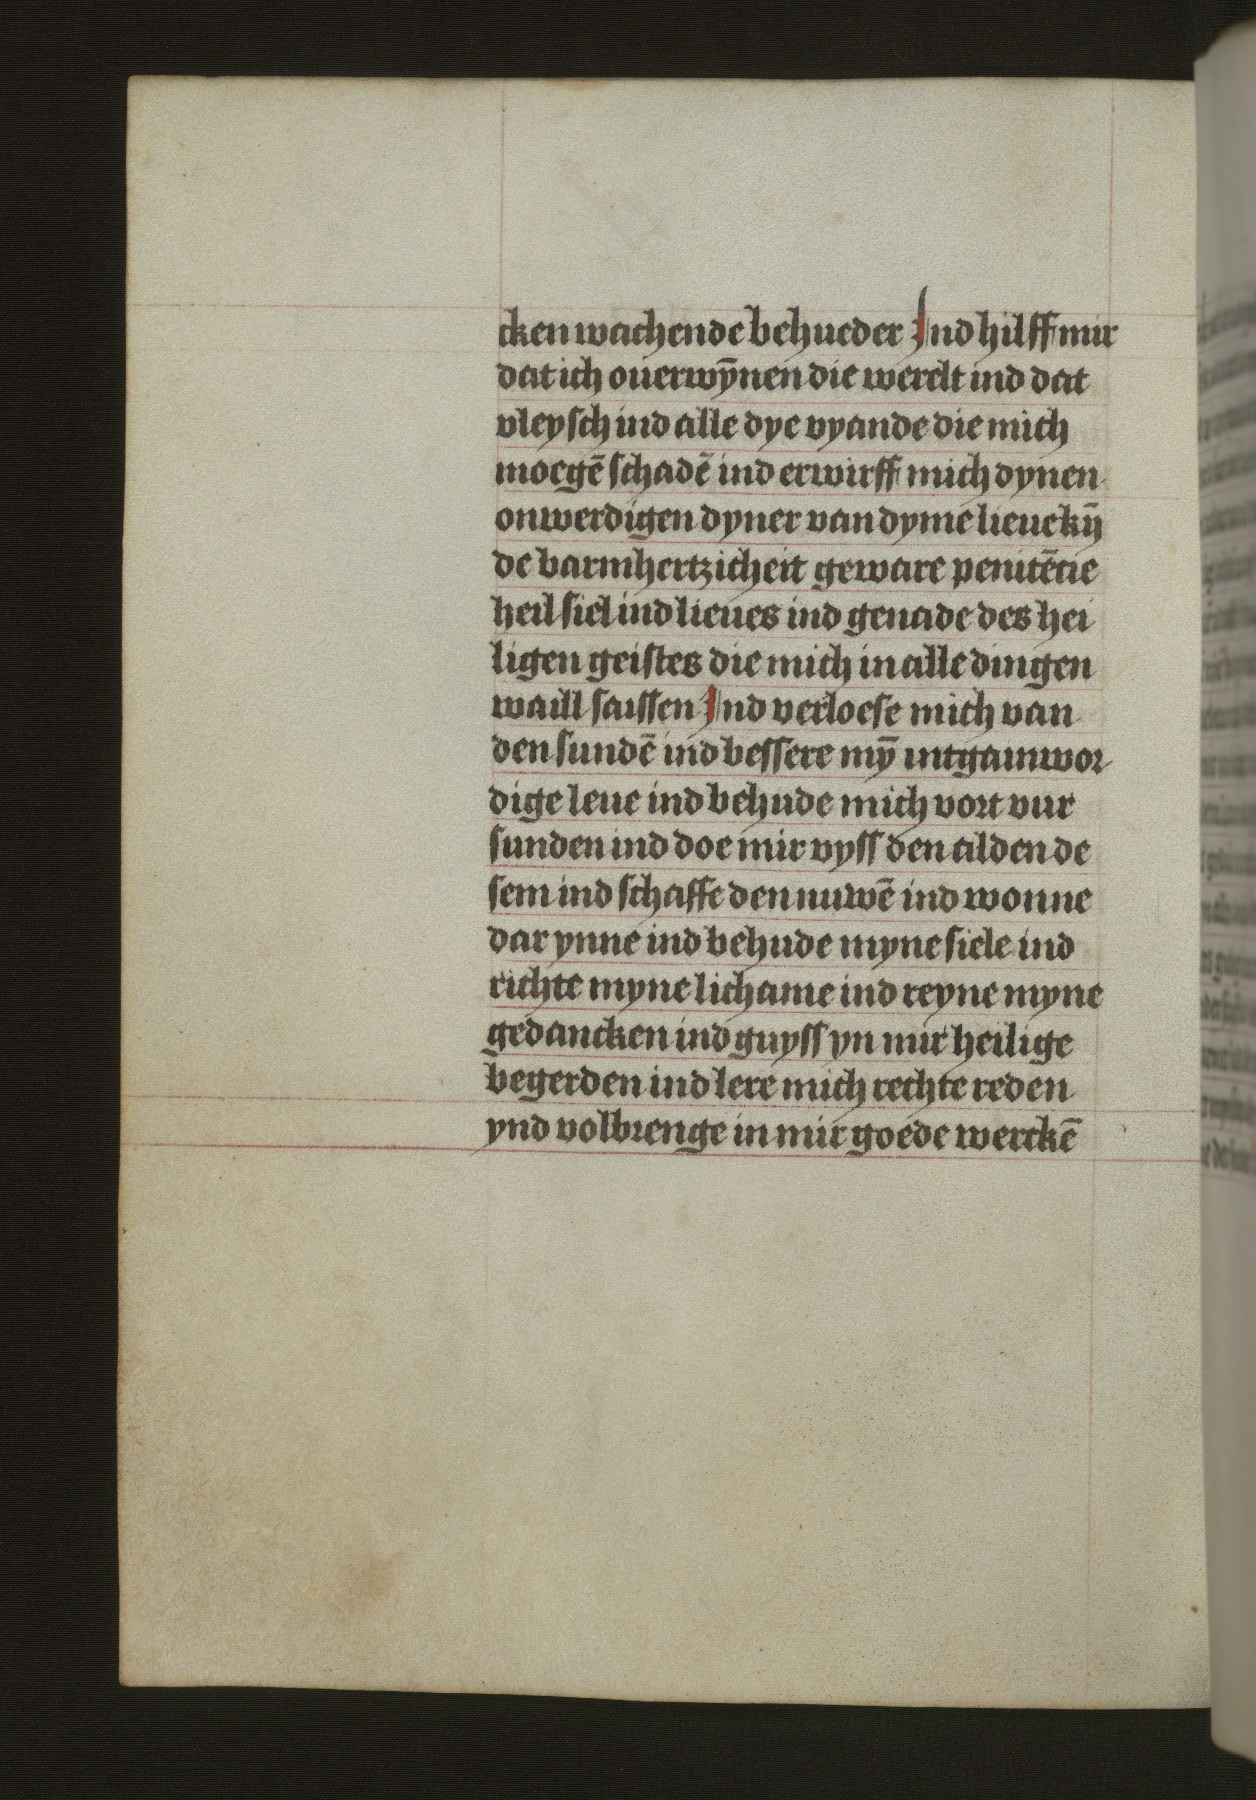 cken wachende behueder Ind hilff mir
dat ich ouerwȳnen die werelt ind dat
vleysch ind alle dye vyande die mich
moegē schadē ind erwirff mich dynen
onwerdigen dyner van dyme lieue kȳ
de barmhertzicheit geware penitētie
heil siel ind lieues ind genade des hei
ligen geistes die mich in alle dingen
waill saissen Ind verloese mich van
den sundē ind bessere mȳ intgainwor
dige leue ind behude mich vort vur
sunden ind doe mir vyss den alden de
sem ind schaffe den nuwē ind wonne
dar ynne ind behude myne siele ind
richte myne lichame ind reyne myne
gedancken ind guyss yn mir heilige
begerden ind lere mich rechte reden
ynd volbrenge in mir goede werckē